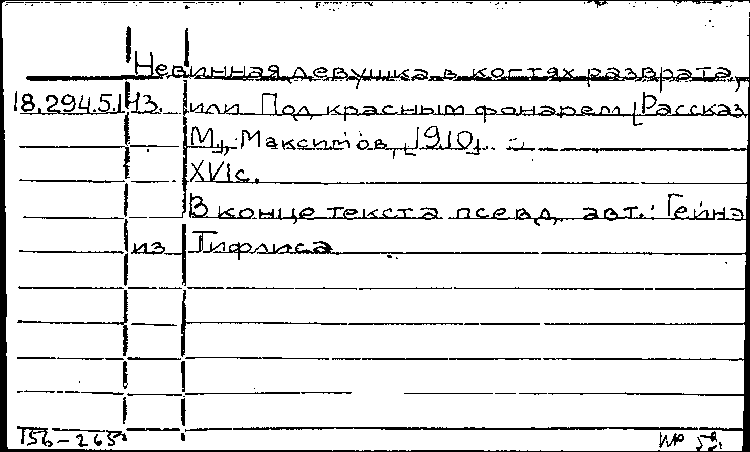 Невинная девушка в когтях разврата,
18.294.5.113. или Под красным фонарем [Рассказ
М], Максимов, [1910].
XVI с.
В конце текста псевд. авт.: Гейнэ
из Тифлиса
156-265